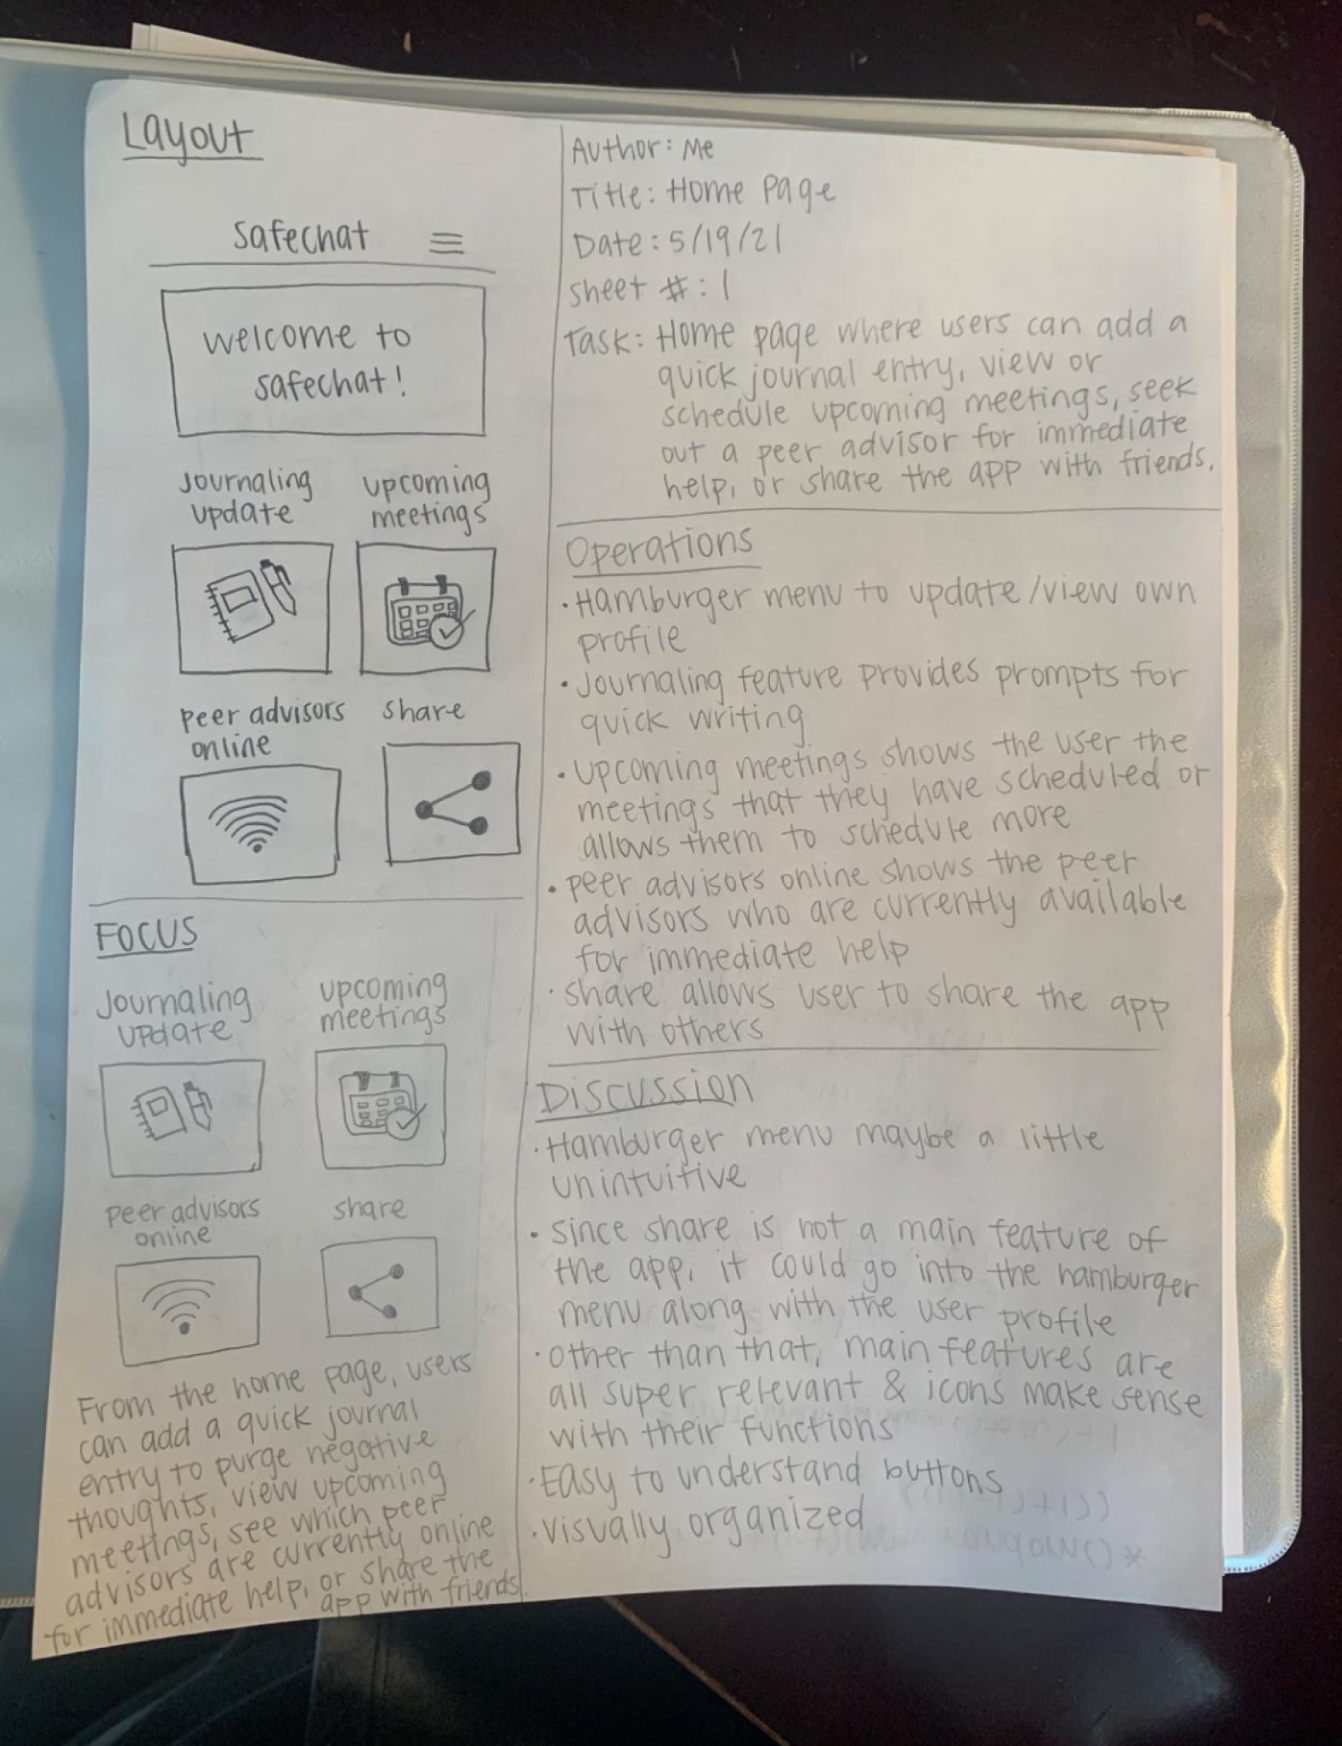 Layout
Safechat
welcome to
safechat!
Journaling
update
upcoming
meetings
peer advisors
online
share
Focus
Journaling
update
upcoming
meetings
peer advisors
online
share
From the home page, users
can add a quick journal
entry to purge negative
thoughts, view upcoming
meetings, see which peer
advisors are currently online
for immediate help, or share the
app with friends.
Author: Me
Title: Home Page
Date: 5/19/21
Sheet #: 1
Task: Home page where users can add a
quick journal entry, view or
schedule upcoming meetings, seek
out a peer advisor for immediate
help, or share the app with friends.
Operations
• Hamburger menu to update/view own
profile
• Journaling feature provides prompts for
quick writing
• Upcoming meetings shows the user the
meetings that they have scheduled or
allows them to schedule more
• peer advisors online shows the peer
advisors who are currently available
for immediate help
• share allows user to share the app
with others
Discussion
• Hamburger menu maybe a little
unintuitive
• since share is not a main feature of
the app, it could go into the hamburger
menu along with the user profile
• other than that, main features are
all super relevant & icons make sense
with their functions
• Easy to understand buttons
• visually organized